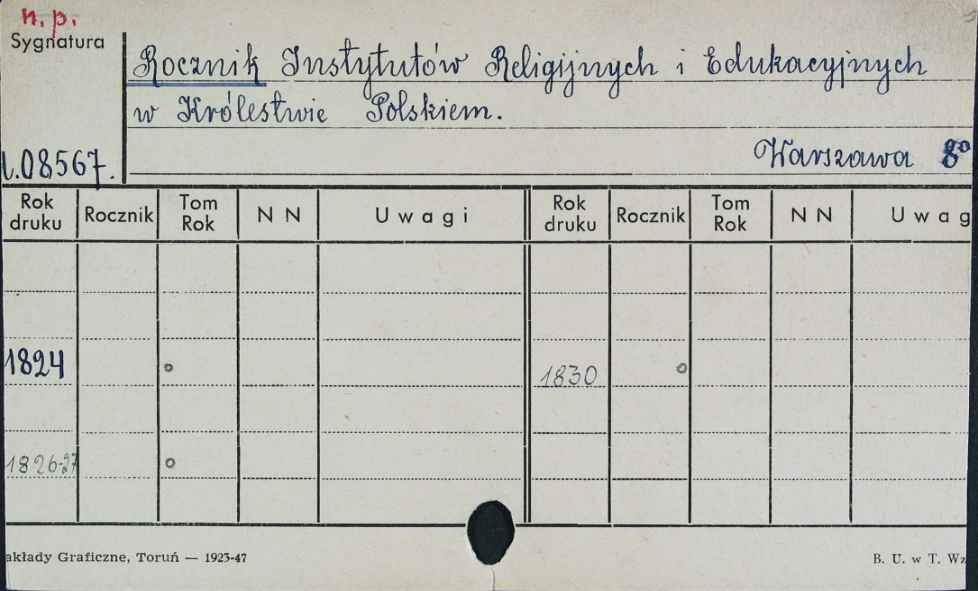 n. p.
Sygnatura
Rocznik Instytutów Religijnych i Edukacyjnych
w Królestwie Polskiem.
Warszawa 8º
08567.
Rok druku Rocznik Tom Rok N N Uwagi Rok druku Rocznik Tom Rok N N Uwag
1824 o 1830 o
1826-27 o
akłady Graficzne, Toruń — 1923-47 B. U. w T. Wz